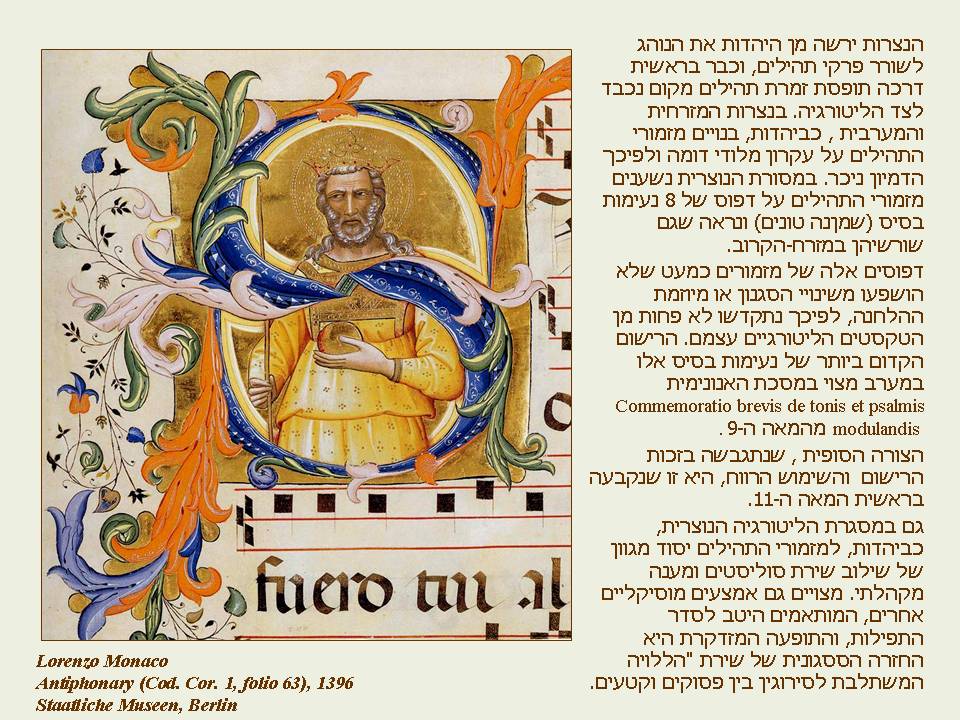 הנצרות ירשה מן היהדות את הנוהג
לשורר פרקי תהילים, וכבר בראשית
דרכה תופסת זמרת תהילים מקום נכבד
לצד הליטורגיה. בנצרות המזרחית
והמערבית , כביהדות, בנויים מזמורי
התהילים על עקרון מלודי דומה ולפיכך
הדמיון ניכר. במסורת הנוצרית נשענים
מזמורי התהילים על דפוס של 8 נעימות
בסיס (שמןנה טונים) ונראה שגם
שורשיהן במזרח-הקרוב.
דפוסים אלה של מזמורים כמעט שלא
הושפעו משינויי הסגנון או מיוזמת
ההלחנה, לפיכך נתקדשו לא פחות מן
הטקסטים הליטורגיים עצמם. הרישום
הקדום ביותר של נעימות בסיס אלו
במערב מצוי במסכת האנונימית
Commemoratio brevis de tonis et psalmis
modulandis מהמאה ה-9 .
הצורה הסופית , שנתגבשה בזכות
הרישום והשימוש הרווח, היא זו שנקבעה
בראשית המאה ה-11.
גם במסגרת הליטורגיה הנוצרית,
כביהדות, למזמורי התהילים יסוד מגוון
של שילוב שירת סוליסטים ומענה
מקהלתי. מצויים גם אמצעים מוסיקליים
אחרים, המותאמים היטב לסדר
התפילות, והתופעה המזדקרת היא
החזרה הססגונית של שירת "הללויה
המשתלבת לסירוגין בין פסוקים וקטעים.
fuero tui al
Lorenzo Monaco
Antiphonary (Cod. Cor. 1, folio 63), 1396
Staatliche Museen, Berlin